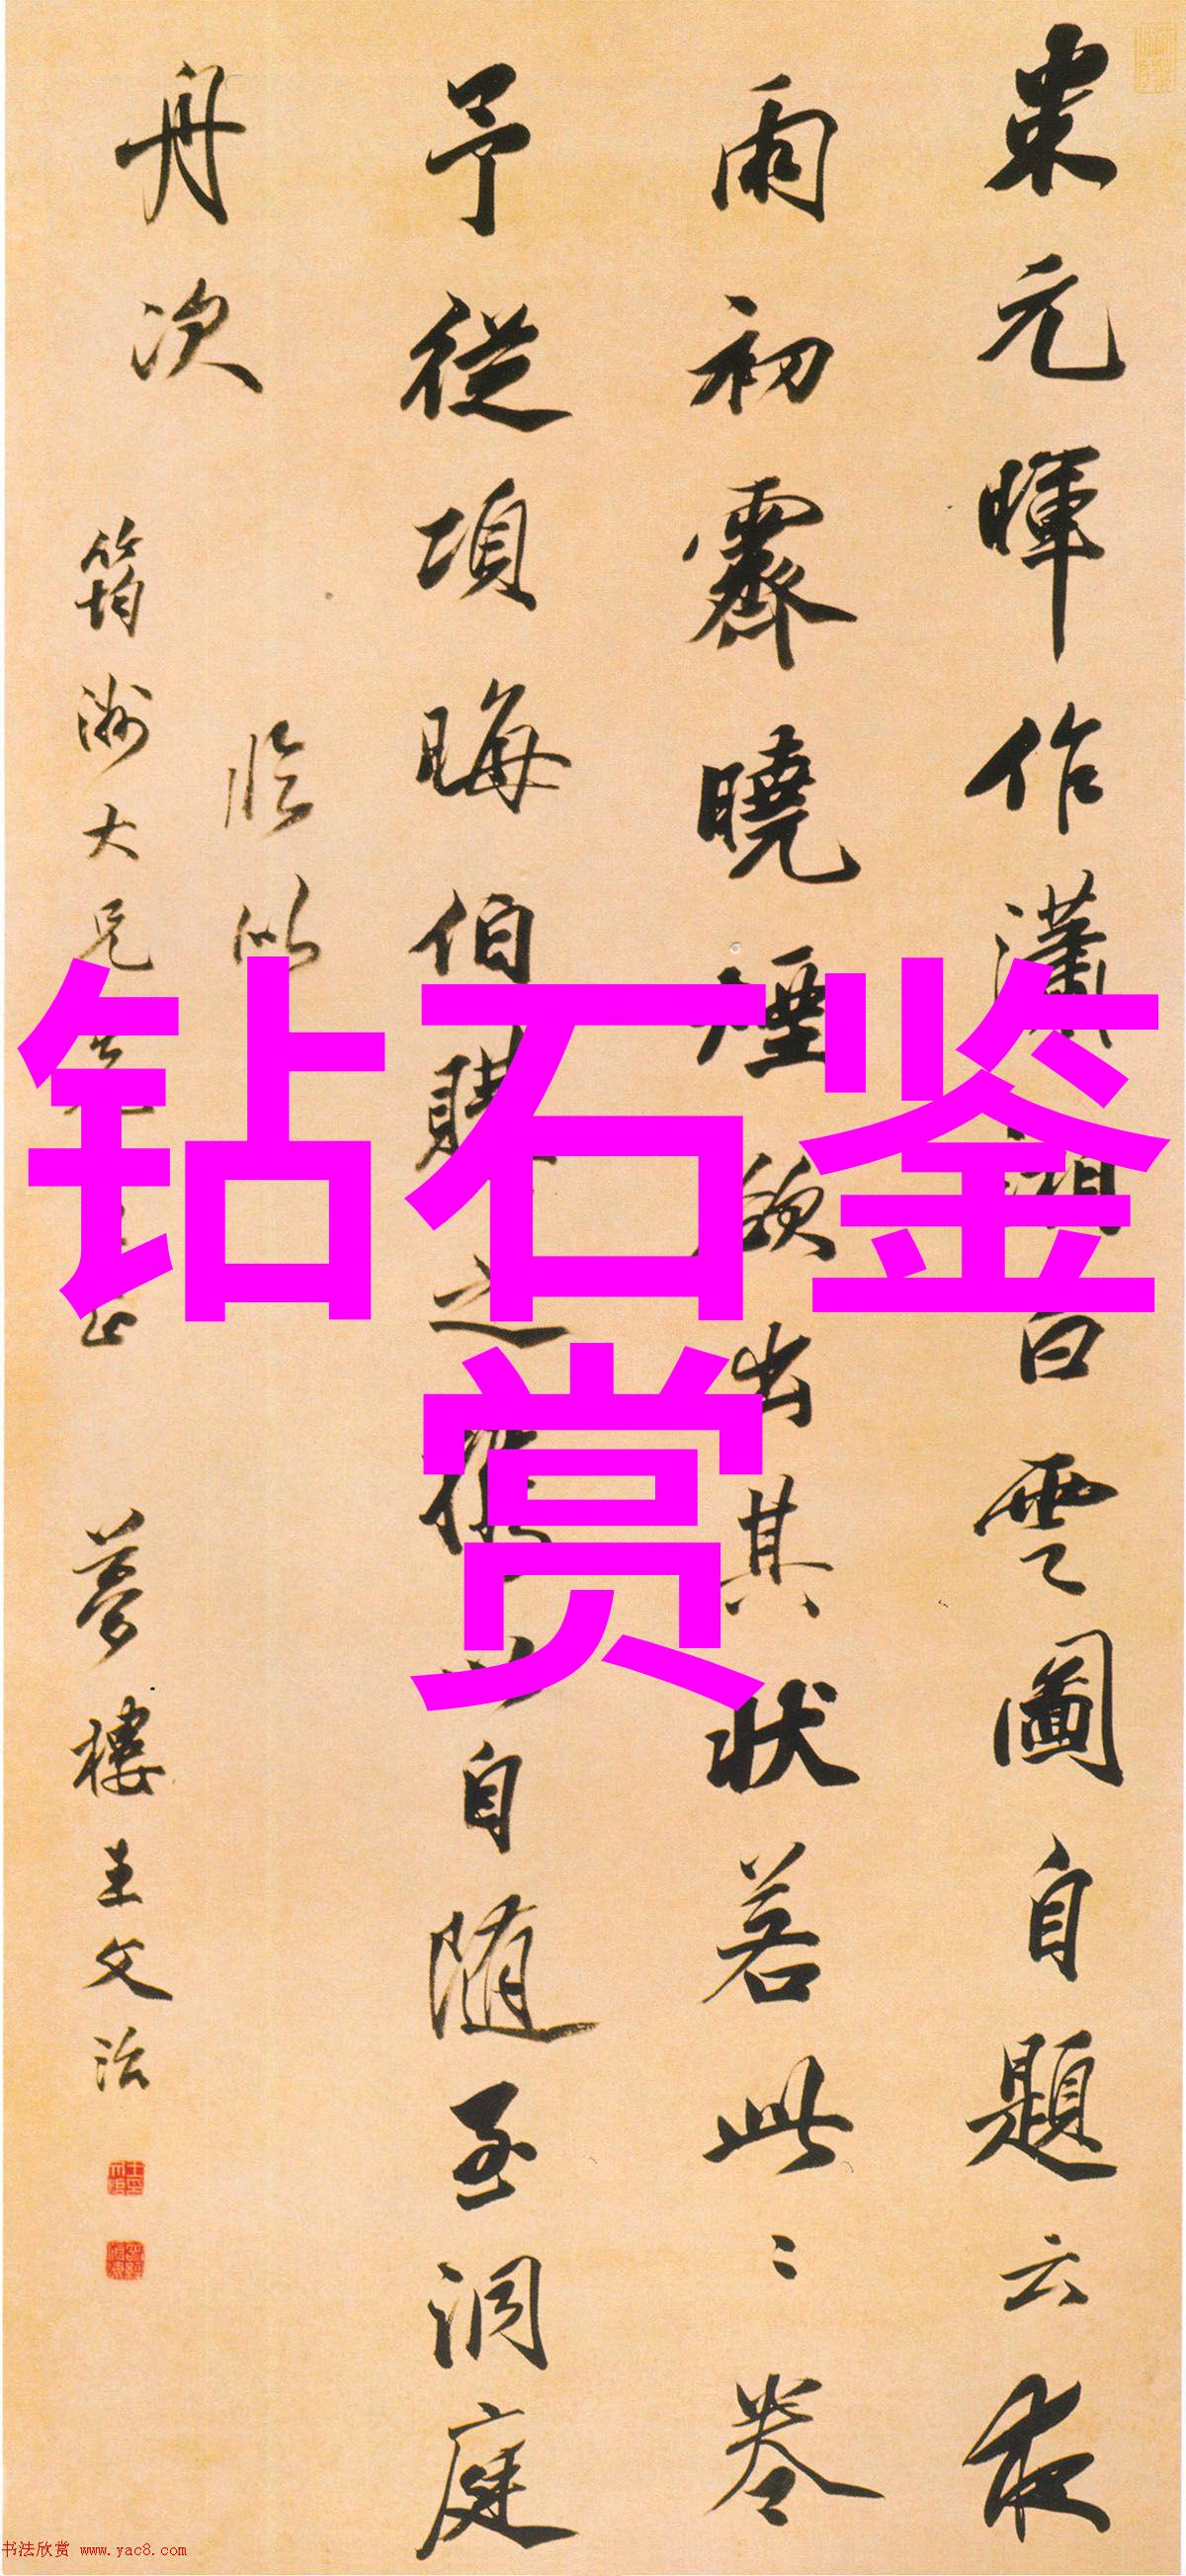 米元暉作瀟湘白雲圖自題云夜
雨初霽曉煙欲出其狀若此此卷
予從項晦伯購之携以自随至洞庭
舟次
臨似
筠洲大兄
正
夢樓王文治
钻石鉴
赏
书法欣赏 www.yac8.com